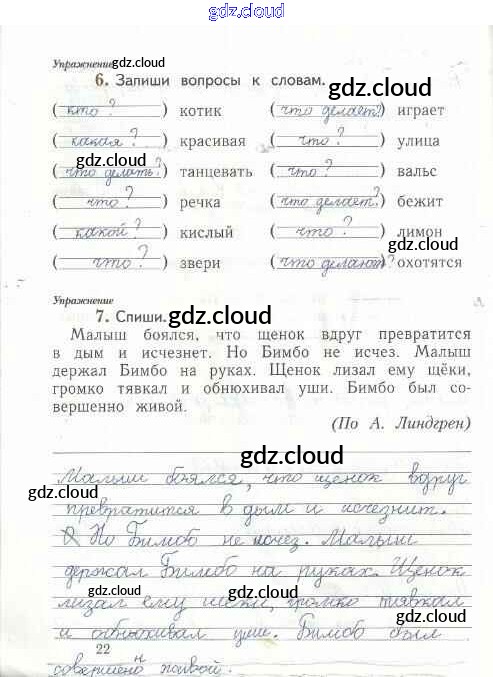 gdz.cloud
gdz.cloud
Упражнение
6. Запиши вопросы к словам.
gdz.cloud
( кто? ) котик ( что делает? ) играет
( какая? ) красивая ( что? ) улица
gdz.cloud gdz.cloud
( что делать? ) танцевать ( что? ) вальс
( что? ) речка ( что делает? ) бежит
( какой? ) кислый ( что? ) лимон
gdz.cloud
( что? ) звери ( что делают? ) охотятся
Упражнение
7. Спиши. gdz.cloud
Малыш боялся, что щенок вдруг превратится
в дым и исчезнет. Но Бимбо не исчез. Малыш
держал Бимбо на руках. Щенок лизал ему щёки,
громко тявкал и обнюхивал уши. Бимбо был со-
вершенно живой.
(По А. Линдгрен)
gdz.cloud
Малыш боялся, что щенок вдруг
gdz.cloud
превратится в дым и исчезнит.
Но Бимбо не исчез. Малыш
gdz.cloud
держал Бимбо на руках. Щенок
лизал ему щеки, громко тявкал
gdz.cloud
и обнюхивал уши. Бимбо был
22
совершено н живой.
gdz.cloud